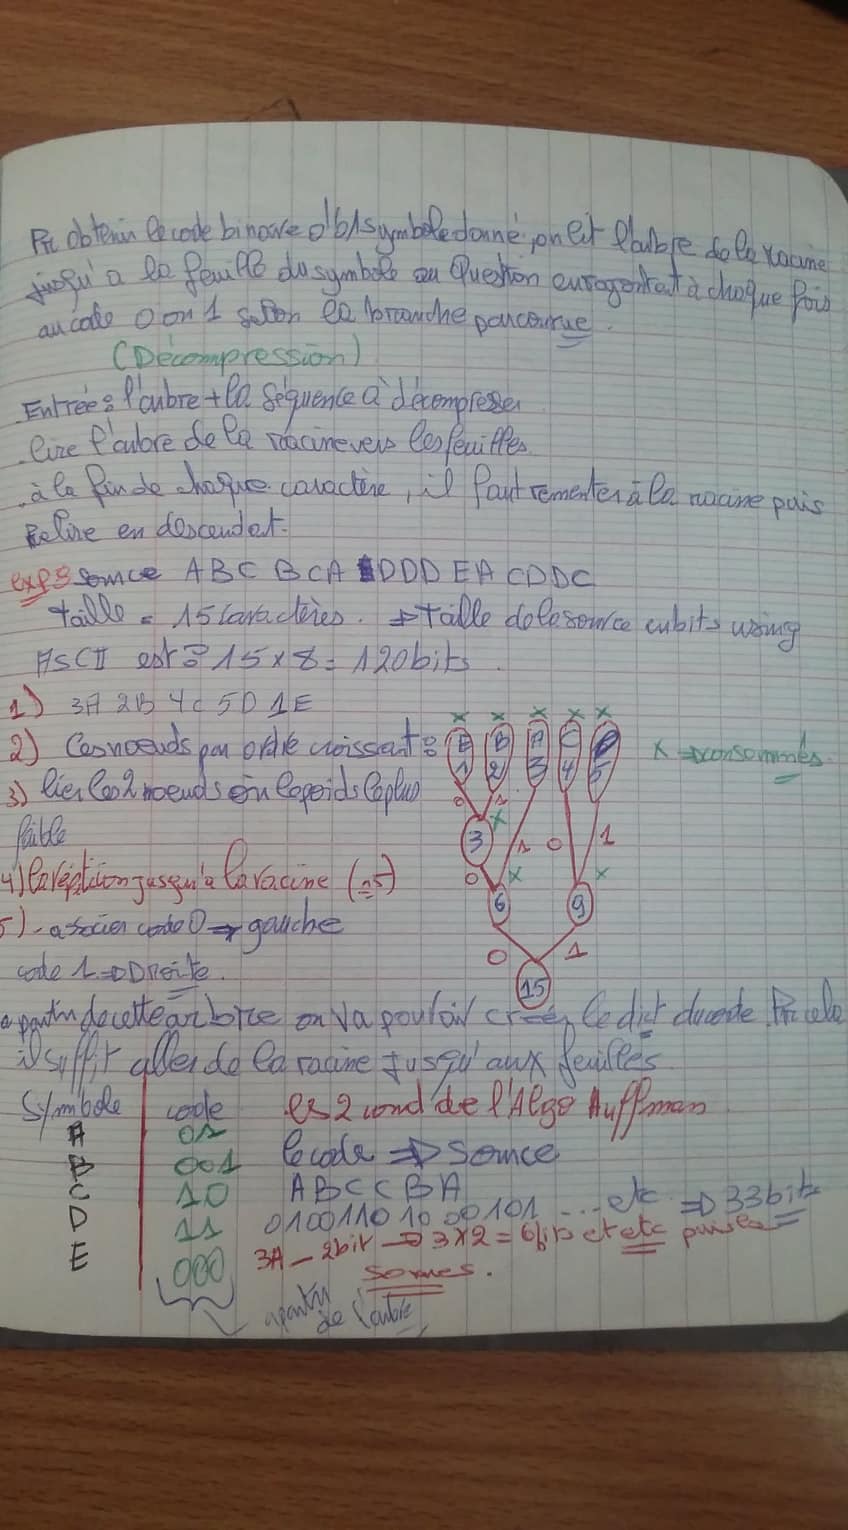 Pr obtenir le code binaire d'1 symbole donné, on lit l'arbre de la racine
jusqu'a la feuille du symbole en Question en rajoutant à chaque fois
au code 0 ou 1 selon la branche parcourue.
(Décompression)
Entrée : l'arbre + la séquence à décompresser
lire l'arbre de la racine vers les feuilles.
à la fin de chaque caractère, il faut remonter à la racine puis
Relire en descendant.
exp: source ABC BCA DDD EA CDDC
taille = 15 caractères. ⇒ taille de la source en bits using
ASCII est : 15 x 8 = 120 bits.
1) 3A 2B 4C 5D 1E
2) Ces noeuds par ordre croissant :
E 1 B 2 A 3 C 4 D 5
x ⇒ consommés.
3) lier les 2 noeuds le poids le plus
faible
3 0 1 0 1
4) La répétition jusqu'a la racine (15)
0 6 9
5) - associer code 0 → gauche
code 1 ⇒ Droite.
0 1
15
a partir de cette arbre on va pouvoir créer le dict du code. Pr cela
il suffit aller de la racine jusqu'aux feuilles.
Symbole code les 2 cond de l'Algo Huffman.
A 01
B 001 le code ⇒ source
C 10 ABCCBA
D 11 0100110 10 00101 ... etc ⇒ 33 bits
3A _ 2bit → 3x2 = 6bits et etc puis la
E 000 somes.
a partir
de l'arbre